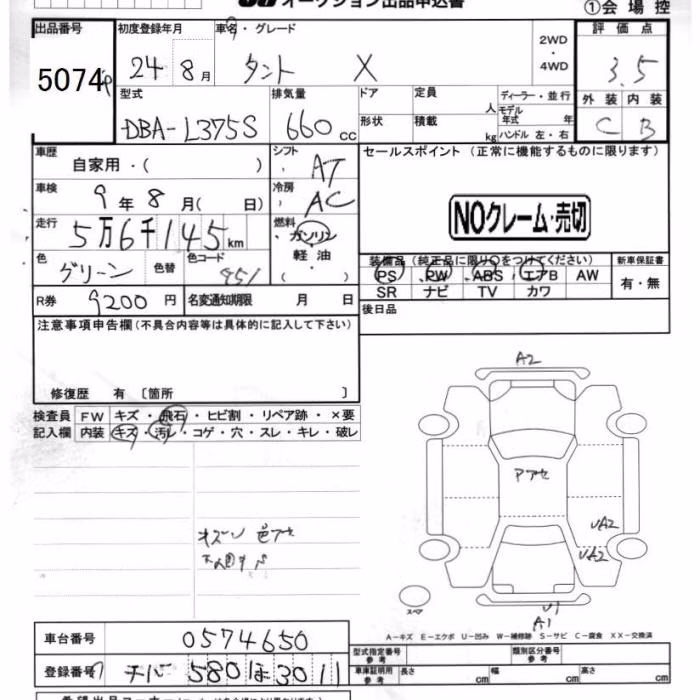 オークション出品申込書
①会場控
出品番号
5074
初度登録年月
24年 8月
車名・グレード
タント X
2WD
・
4WD
評価点
3.5
型式
DBA-L375S
排気量
660cc
ドア
形状
定員 人
積載 kg
ディーラー・並行
モデル年式 年
ハンドル 左・右
外装 内装
C B
車歴
自家用・( )
シフト
AT
セールスポイント(正常に機能するものに限ります)
車検
9年 8月( 日)
冷房
AC
NOクレーム・売切
走行
5万6千145km
燃料
・ガソリン
軽油
・( )
色
グリーン
色替
カラーコード
装備品(純正品に限り○をつけてください)
新車保証書
PS PW ABS エアB AW
SR ナビ TV カワ
有・無
R券
9200円
名変通知期限 月 日
後日品
注意事項申告欄(不具合内容等は具体的に記入して下さい)
修復歴 有〔箇所 〕
検査員
記入欄
FW キズ・飛石・ヒビ割・リペア跡・×要
内装 キズ・汚レ・コゲ・穴・スレ・キレ・破レ
A2
Pアセ
UA2
UA2
U1
A1
スペア
A-キズ E-エクボ U-凹み W-補修跡 S-サビ C-腐食 XX-交換済
車台番号
0574650
登録番号
チバ 580 ほ 3011
型式指定番号
参考
類別区分番号
参考
車庫証明用
参考
長さ 幅 高さ